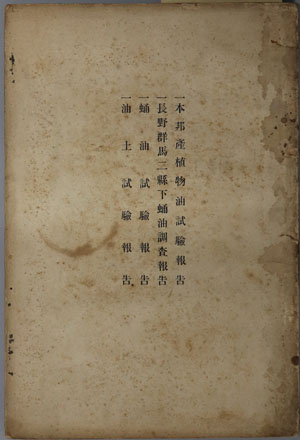 一本邦產植物油試驗報告
一長野群馬二縣下蛹油調査報告
一蛹油試驗報告
一油土試驗報告